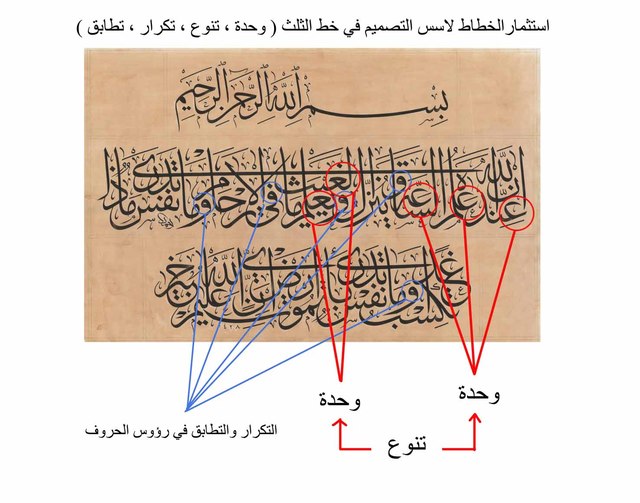 استثمار الخطاط لاسس التصميم في خط الثلث ( وحدة ، تنوع ، تكرار ، تطابق )
بسم الله الرحمن الرحيم
إن الله عنده علم الساعة وينزل الغيث ويعلم ما في الأرحام وما تدري نفس ماذا
تكسب غدا وما تدري نفس بأي أرض تموت إن الله عليم خبير
وحدة
وحدة
التكرار والتطابق في رؤوس الحروف
تنوع